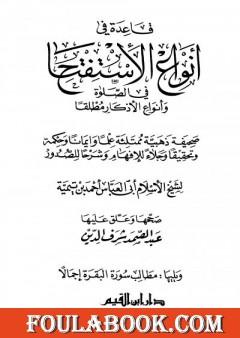 قاعدة في
أنواع الاستفتاح
في الصلوة
وأنواع الأذكار مطلقا
صحيفة ذهبية ممتلئة علما وإيمانا وحكمة
وتحقيقا وجلاء للإفهام وشرحا للصدور
لشيخ الإسلام أبي العباس أحمد بن تيمية
صححها وعلق عليها
عبد الصمد شرف الدين
ويليها: مطالب سورة البقرة إجمالا
دار ابن القيم
FOULABOOK.COM